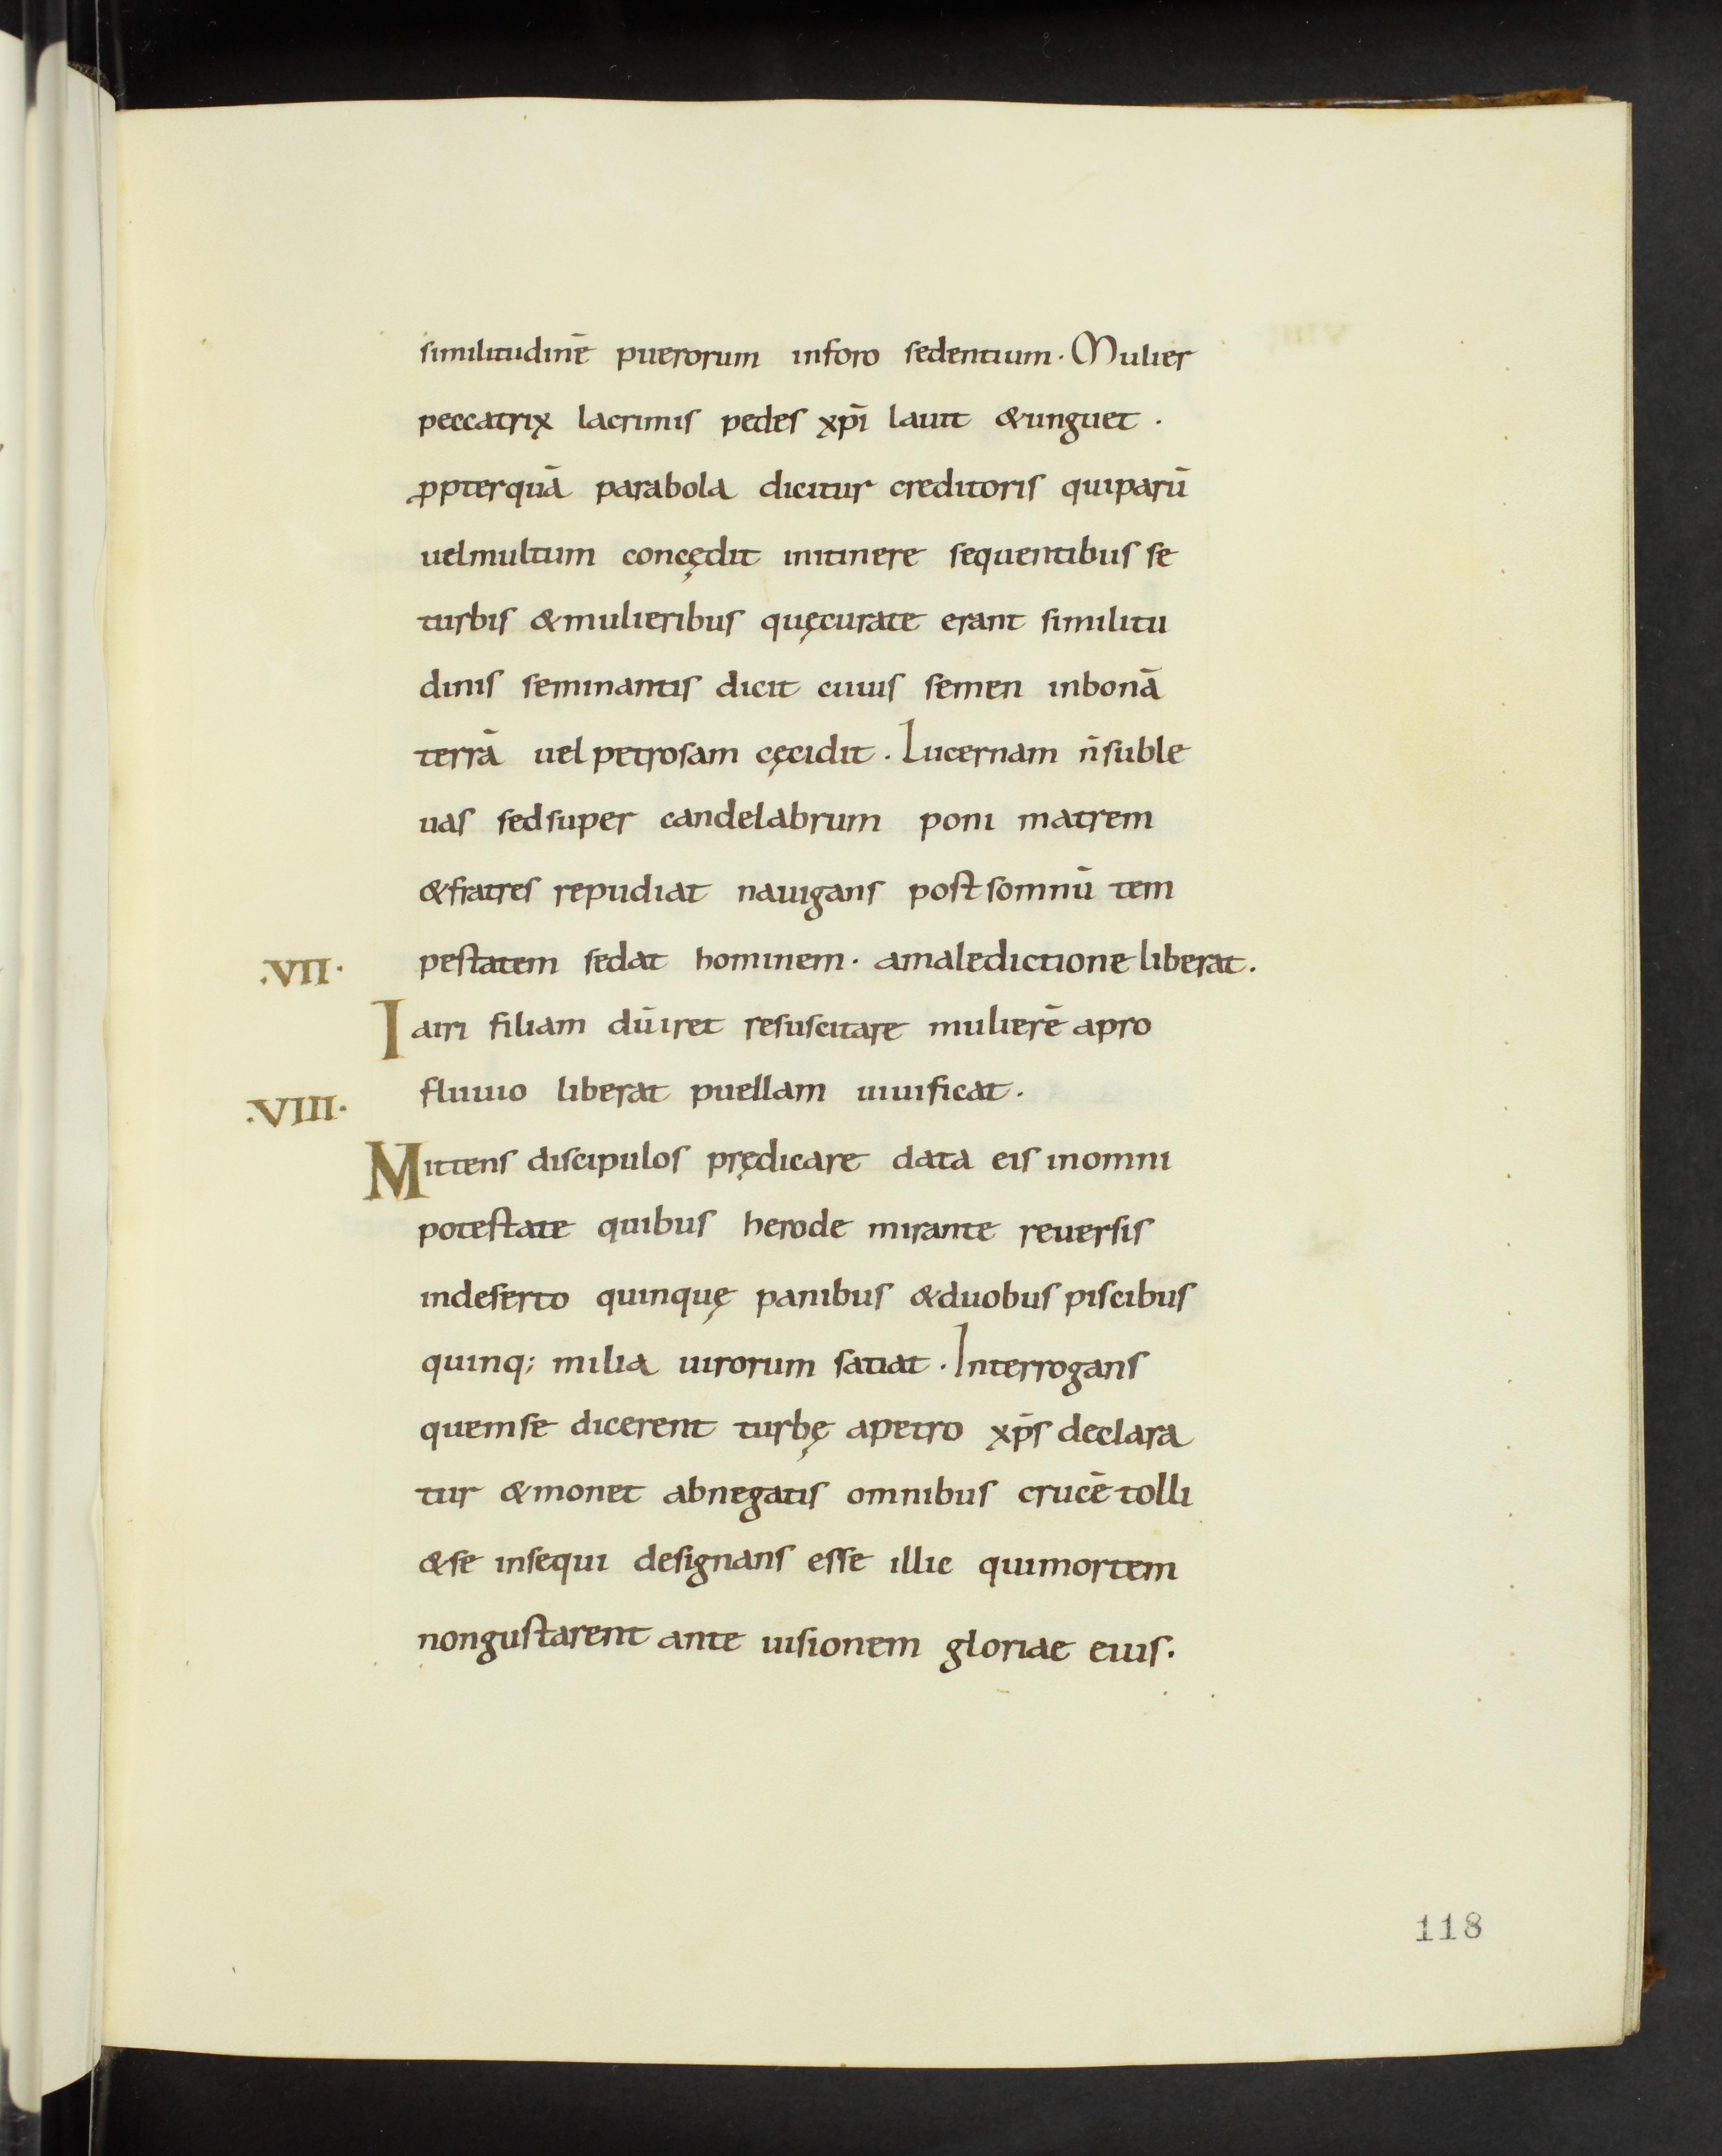 similitudinē puerorum inforo sedentium · Mulier
peccatrix lacrimis pedes xp̄i lauit &unguet ·
ꝓpterquā parabola dicitur creditoris quiparū
uelmultum concędit initinere sequentibus se
turbis &mulieribus quęcurate erant similitu
dinis seminantis dicit cuius semen inbonā
terrā uel petrosam cęcidit · Lucernam n̄ suble
uas sedsuper candelabrum poni matrem
&fratres repudiat nauigans post somnū tem
·VII· pestatem sedat hominem · amaledictione liberat ·
Iairi filiam dūiret resuscitare mulierē apro
·VIII· fluuio liberat puellam uiuificat ·
Mittens discipulos prędicare data eis inomni
potestate quibus herode mirante reuersis
indeserto quinquę panibus &duobus piscibus
quinq; milia uirorum satiat · Interrogans
quemse dicerent turbę apetro xp̄s declara
tur &monet abnegatis omnibus crucē tolli
&se insequi designans esse illic quimortem
nongustarent ante uisionem gloriae eius ·
118